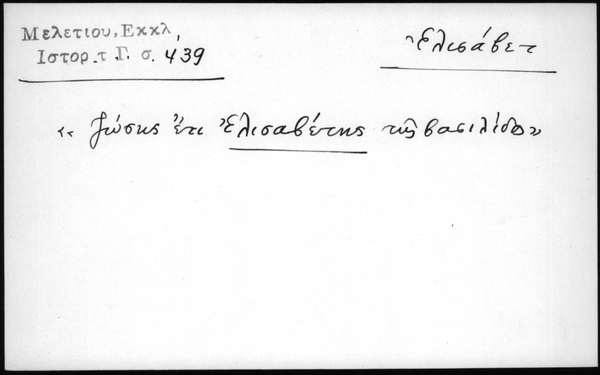 Μελετιου, Εκκλ,
Ιστορ. τ. Γ. σ. 439
Ἐλισάβετ
« ζώσης ἔτι Ἐλισαβέτης τῆς βασιλίδος»